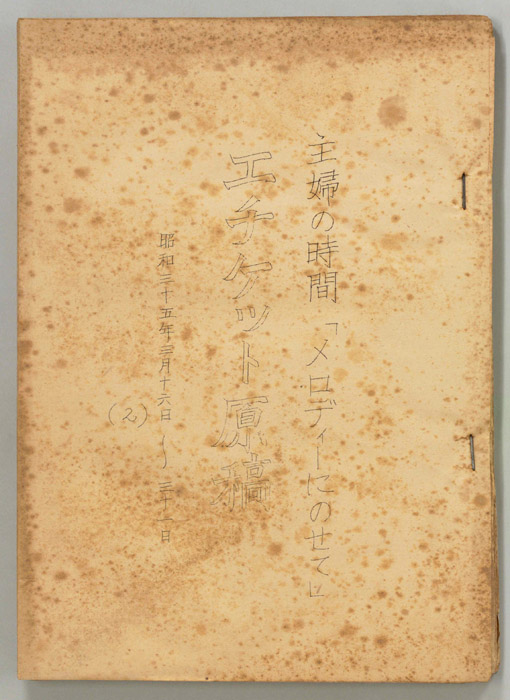 主婦の時間「メロディーにのせて」
エチケット原稿
昭和二十五年三月十六日～三十一日
(2)